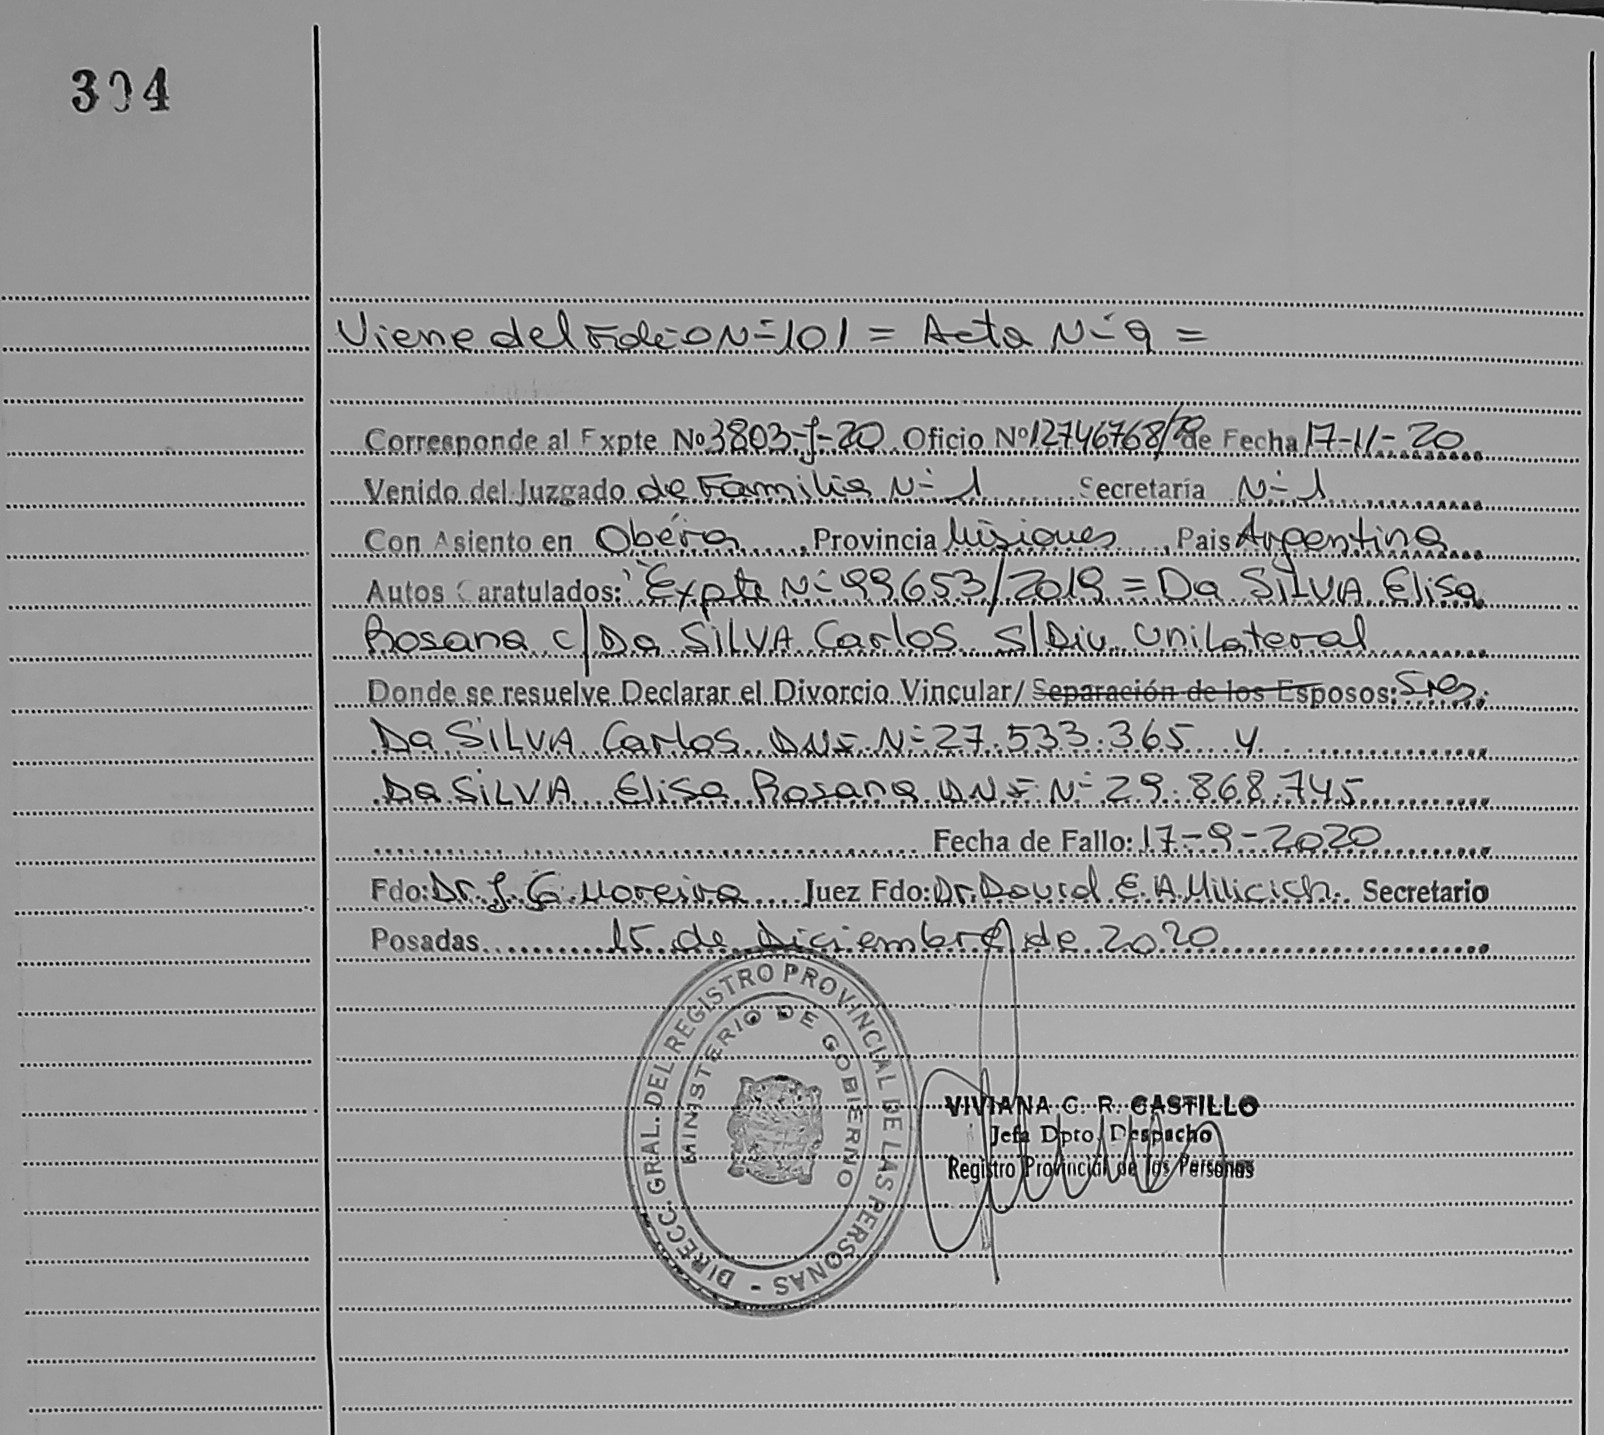 304
Viene del Folio N=101 = Acta N=9 =
Corresponde al Expte Nº 3803-J-20 Oficio Nº 12746768/20 de Fecha 17-11-20
Venido del Juzgado de Familia N=1 Secretaría N=1
Con Asiento en Oberá, Provincia Misiones, Pais Argentina
Autos Caratulados: "Expte N=99653/2019 = Da SILVA Elisa
Rosana c/ Da SILVA Carlos s/ Div. Unilateral
Donde se resuelve Declarar el Divorcio Vincular/ Separación de los Esposos: Sres.
Da SILVA Carlos DNI N=27.533.365 y
Da SILVA Elisa Rosana DNI N=29.868.745
Fecha de Fallo: 17-9-2020
Fdo: Dr. J. G. Moreira Juez Fdo: Dr. David E. A. Milicich. Secretario
Posadas 15 de Diciembre de 2020
DIRECC. GRAL. DEL REGISTRO PROVINCIAL DE LAS PERSONAS -
MINISTERIO DE GOBIERNO
VIVIANA C. R. CASTILLO
Jefa Dpto. Despacho
Registro Provincial de las Personas